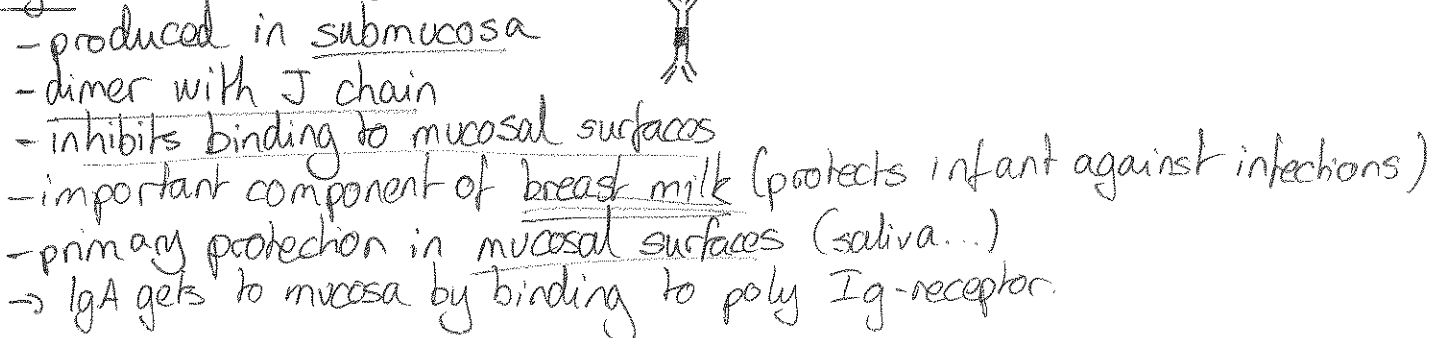 - produced in submucosa
- dimer with J chain
- inhibits binding to mucosal surfaces
- important component of breast milk (protects infant against infections)
- primary protection in mucosal surfaces (saliva...)
→ IgA gets to mucosa by binding to poly Ig-receptor.